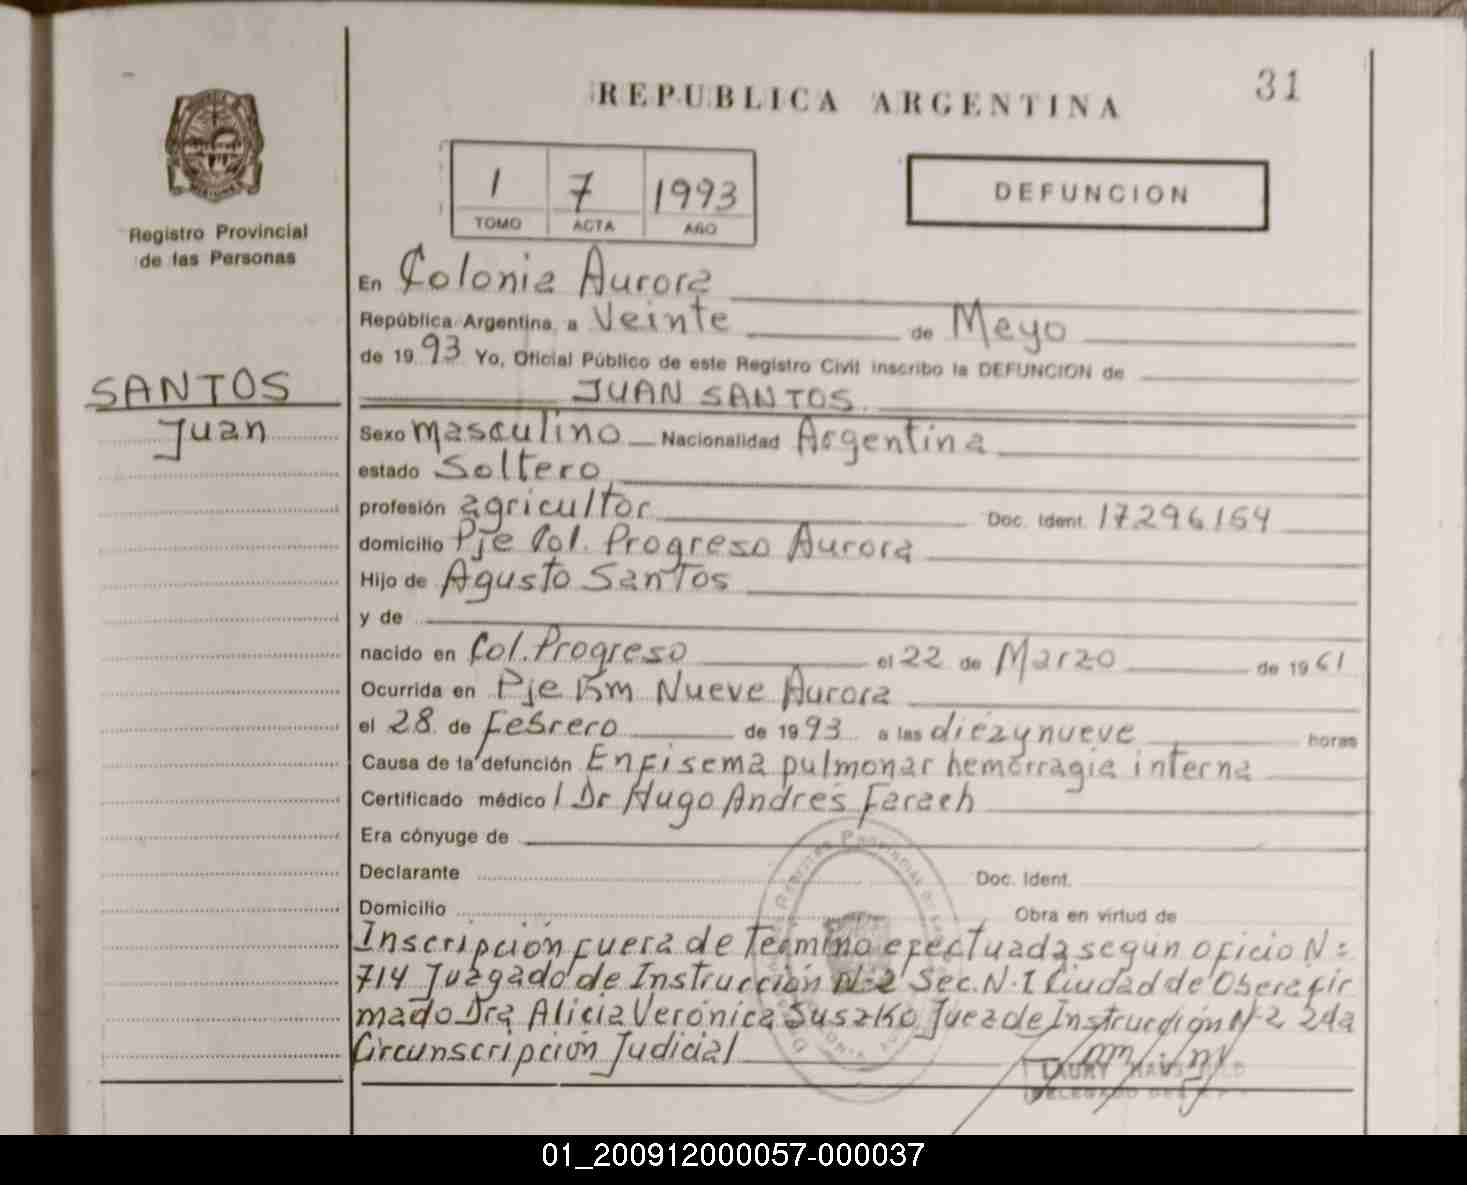 31
REPUBLICA ARGENTINA
1 7 1993
TOMO ACTA AÑO
DEFUNCION
Registro Provincial
de las Personas
SANTOS
Juan
En Colonia Aurora
República Argentina, a Veinte de Mayo
de 1993 Yo, Oficial Público de este Registro Civil inscribo la DEFUNCION de
JUAN SANTOS
Sexo masculino Nacionalidad Argentina
estado Soltero
profesión agricultor Doc. Ident. 17296154
domicilio Pje Col. Progreso Aurora
Hijo de Agusto Santos
y de
nacido en Col. Progreso el 22 de Marzo de 1961
Ocurrida en Pje Km Nueve Aurora
el 28 de Febrero de 1993 a las diezynueve horas
Causa de la defunción Enfisema pulmonar hemorragia interna
Certificado médico Dr Hugo Andrés Farach
Era cónyuge de
Declarante Doc. Ident.
Domicilio Obra en virtud de
Inscripción fuera de Término efectuada según oficio N:
714 Juzgado de Instrucción N:2 Sec. N:1 Ciudad de Obera fir
mado Dra Alicia Verónica Suszko Jueza de Instrucción N:2 2da
Circunscripción Judicial
01_200912000057-000037